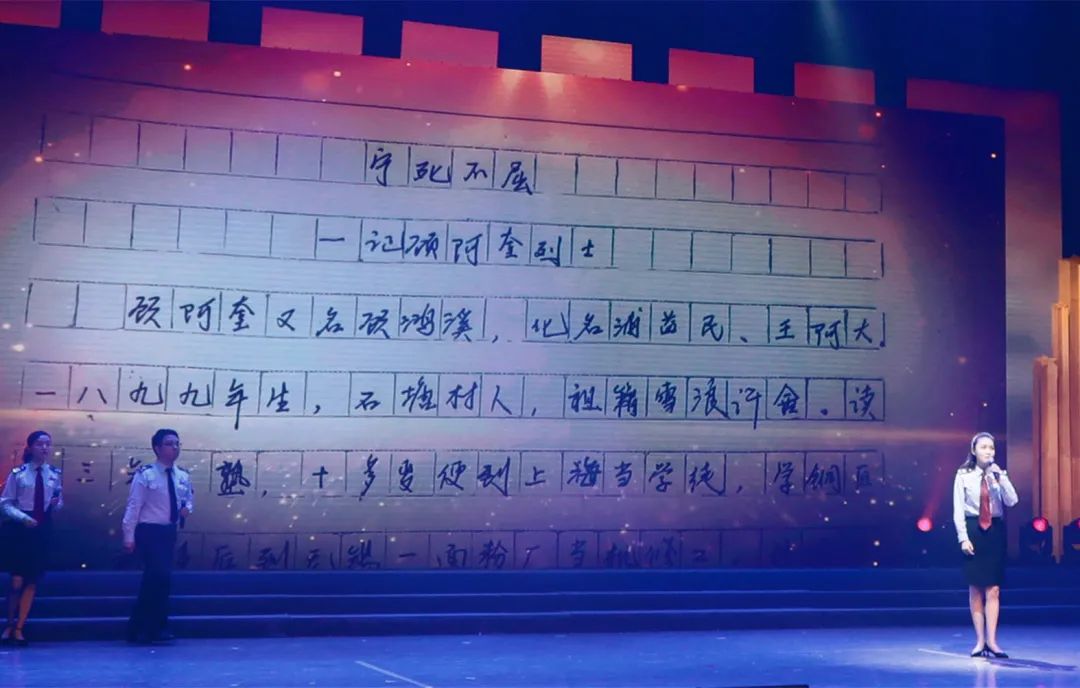 宁死不屈
一记顾阿奎烈士
顾阿奎又名顾鸿溪，化名浦益民、王阿大。
一八九九年生，石塘村人，祖籍雪浪许舍。读
三年 熟，十多岁便到上海当学徒，学铜匠
后到无锡一面粉厂当机修工，